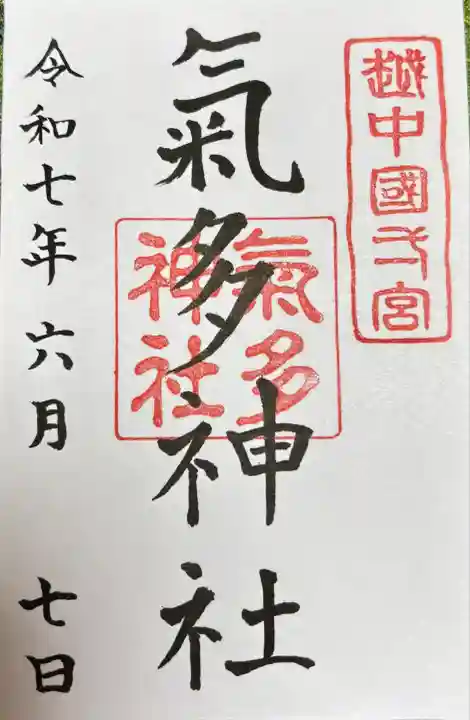 越中國一宮
氣多神社
氣多
神社
令和七年六月七日